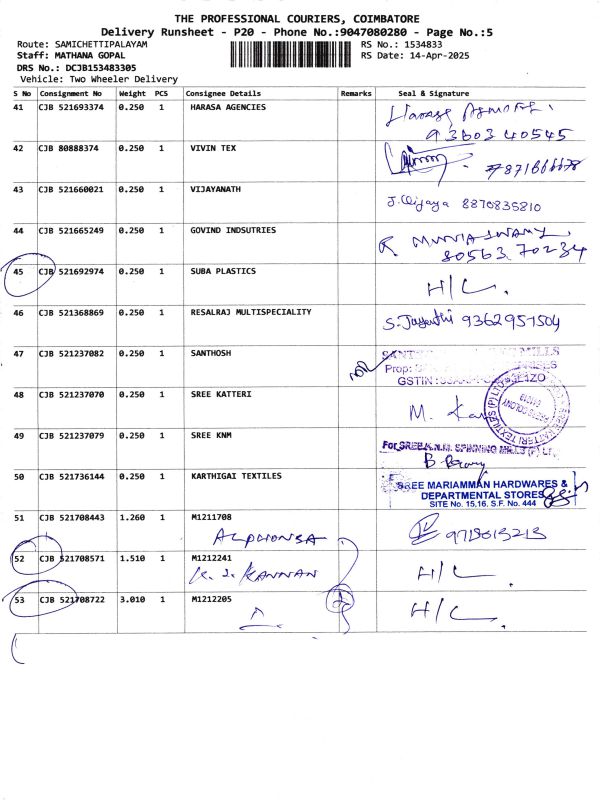 THE PROFESSIONAL COURIERS, COIMBATORE
Delivery Runsheet - P20 - Phone No.:9047080280 - Page No.:5
Route: SAMICHETTIPALAYAM
RS No.: 1534833
Staff: MATHANA GOPAL
RS Date: 14-Apr-2025
DRS No.: DCJB153483305
Vehicle: Two Wheeler Delivery
S No Consignment No Weight PCS Consignee Details Remarks Seal & Signature
41 CJB 521693374 0.250 1 HARASA AGENCIES
9360340545
42 CJB 80888374 0.250 1 VIVIN TEX
43 CJB 521660021 0.250 1 VIJAYANATH J. Vijaya 8870835810
44 CJB 521665249 0.250 1 GOVIND INDSUTRIES R MUNIASWAMY
80563 70234
45 CJB 521692974 0.250 1 SUBA PLASTICS H/C.
46 CJB 521368869 0.250 1 RESALRAJ MULTISPECIALITY S. Jayanthi 9362951504
47 CJB 521237082 0.250 1 SANTHOSH MILLS
Prop:
GSTIN
48 CJB 521237070 0.250 1 SREE KATTERI M.
49 CJB 521237079 0.250 1 SREE KNM For SREE K.N.M. SPINNING MILLS (P) LT
B
50 CJB 521736144 0.250 1 KARTHIGAI TEXTILES SREE MARIAMMAN HARDWARES &
DEPARTMENTAL STORES
SITE No. 15,16. S.F. No. 444
51 CJB 521708443 1.260 1 M1211708
ALPHONSA 9715013213
52 CJB 521708571 1.510 1 M1212241
K. J. KANNAN H/C.
53 CJB 521708722 3.010 1 M1212205 H/C.